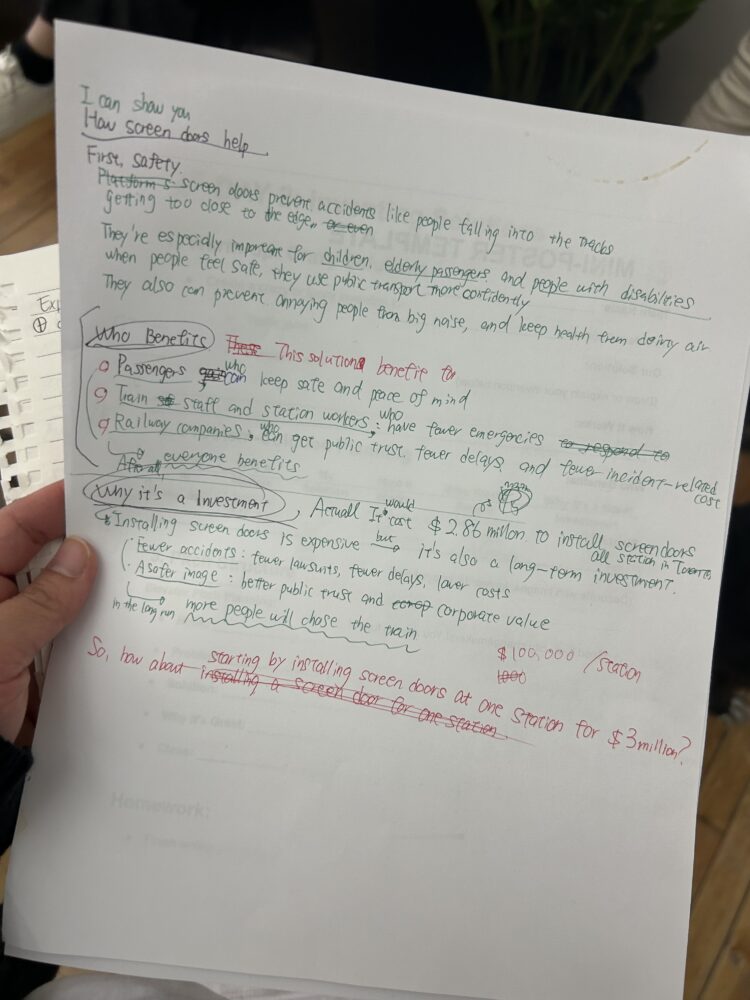 I can show you
How screen doors help
First, Safety.
Platform s screen doors prevent accidents like people falling into the tracks
getting too close to the edge, or even
They're especially important for children, elderly passengers, and people with disabilities
when people feel safe, they use public transport more confidently
They also can prevent annoying people from big noise, and keep health from doiny air
Who Benefits
These This solution benefit to
Passengers who can keep safe and peace of mind
Train staff and station workers; who have fewer emergencies to respond to
Railway companies; who can get public trust, fewer delays, and fewer incident-related cost
After all, everyone benefits
Why it's a Investment, Actuall It would cost $2.86 millon to install screendoors
all station in Toronto
Installing screen doors is expensive but it's also a long-term investment.
Fewer accidents: fewer lawsuits, fewer delays, lower costs
A safer image: better public trust and corporate value
in the long run more people will chose the train
$100,000 /station
1000
So, how about starting by installing screen doors at one station for $3 million?
installing a screen door for one station.
MINI-POSTER TEMPLATE
Homework:
Exp